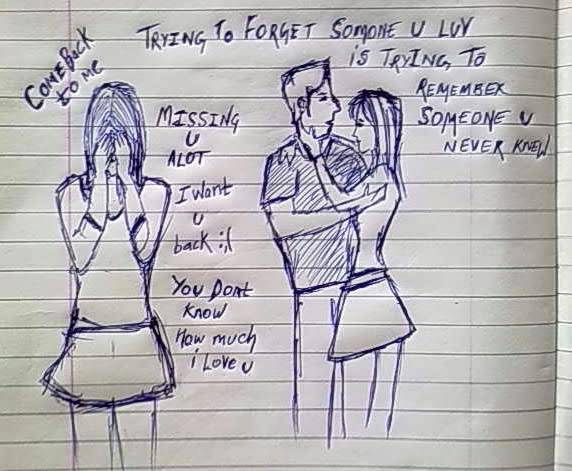 TRYING TO FORGET SOMONE U LUV
IS TRYING TO
REMEMBER
SOMEONE U
NEVER KNEW
COME BACK
to me
MISSING
U
ALOT
I Want
U
back :,(
YOU DONt
KNOW
How much
i LOVE U